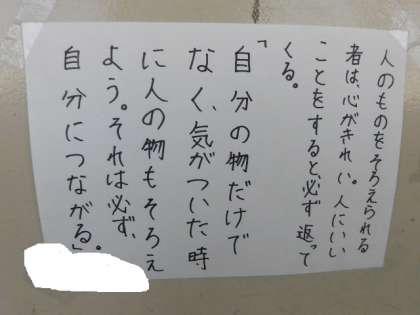 人のものをそろえられる
者は、心がきれい。人にいい
ことをすると、必ず返って
くる。
「自分の物だけで
なく、気がついた時
に人の物もそろえ
よう。それは必ず、
自分につながる。」